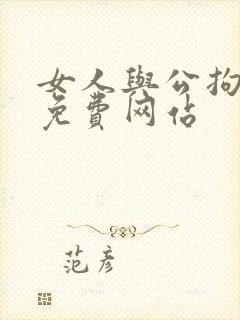 女人與公拘
免費网站
范彦